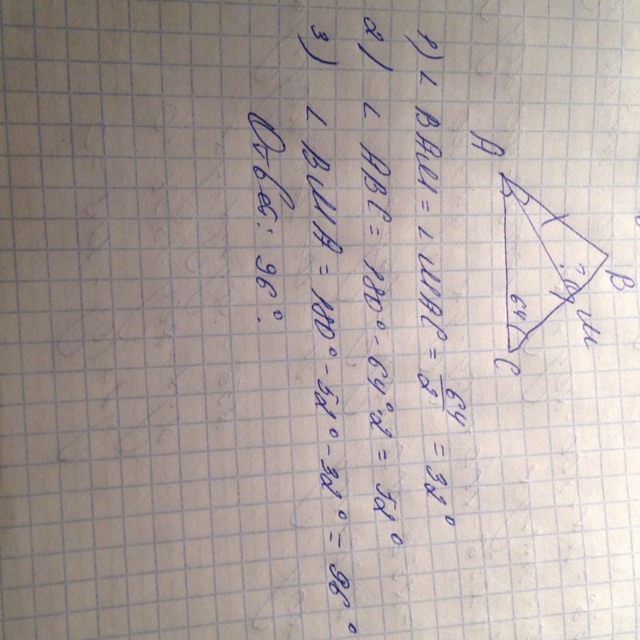 B
M
A
C
64
?
1) ∠ BAM = ∠ MAC = 64/2 = 32°
2) ∠ ABC = 180° - 64°·2 = 52°
3) ∠ BMA = 180° - 52° - 32° = 96°
Ответ: 96°.